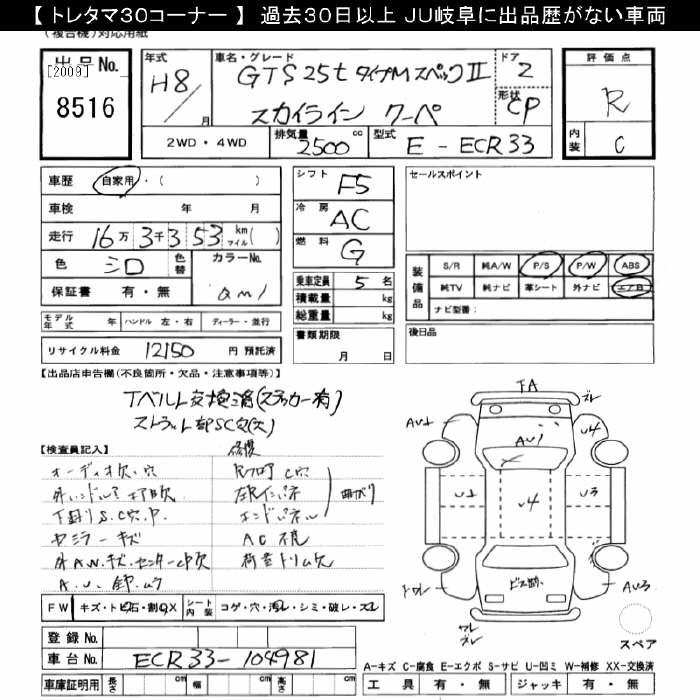 【トレタマ30コーナー 】 過去30日以上 JU岐阜に出品歴がない車両
(複合機)対応用紙
出品No.
[2009]
8516
年式
H8/
月
車名・グレード
GTS25t タイプMスペックⅡ
スカイライン クーペ
ドア
2
形状
CP
評価点
R
内装
C
2WD・4WD
排気量
2500
cc
型式
E-ECR33
車歴
自家用・( )
車検
年 月
走行
16万3千353
km
マイル( )
色
シロ
色替
カラーNo.
QM1
保証書 有・無
モデル年式 年
ハンドル 左・右
ディーラー・並行
リサイクル料金 12150 円 預託済
シフト
F5
冷房
AC
燃料
G
乗車定員 5 名
積載量 kg
総重量 kg
書類期限
月 日
セールスポイント
装備品
S/R 純A/W P/S P/W ABS
純TV 純ナビ 革シート 外ナビ エアB
ナビ型番:
後日品
【出品店申告欄(不良箇所・欠品・注意事項等)】
Tベルト交換済(ステッカー有)
ストラット部SC穴(大)
【検査員記入】
修復
オーディオ欠.穴
C穴
外ハンドル エアB欠
下廻りS.C穴.P.
エンドパネル
曲がり
キズ
AC不良
外A.W.キズ.センターCP欠
荷室トリム欠
A.U.
ムラ
FW キズ・トビ石・割・X
シート内装 コゲ・穴・汚レ・シミ・破レ・スレ
登録No.
車台No. ECR33-104981
車庫証明用 長さ cm 幅 cm 高さ cm
TA
AU2
AU1
U4
U2
U4
U3
AU3
スペア
A-キズ C-腐食 E-エクボ S-サビ U-凹ミ W-補修 XX-交換済
工具 有・無 ジャッキ 有・無